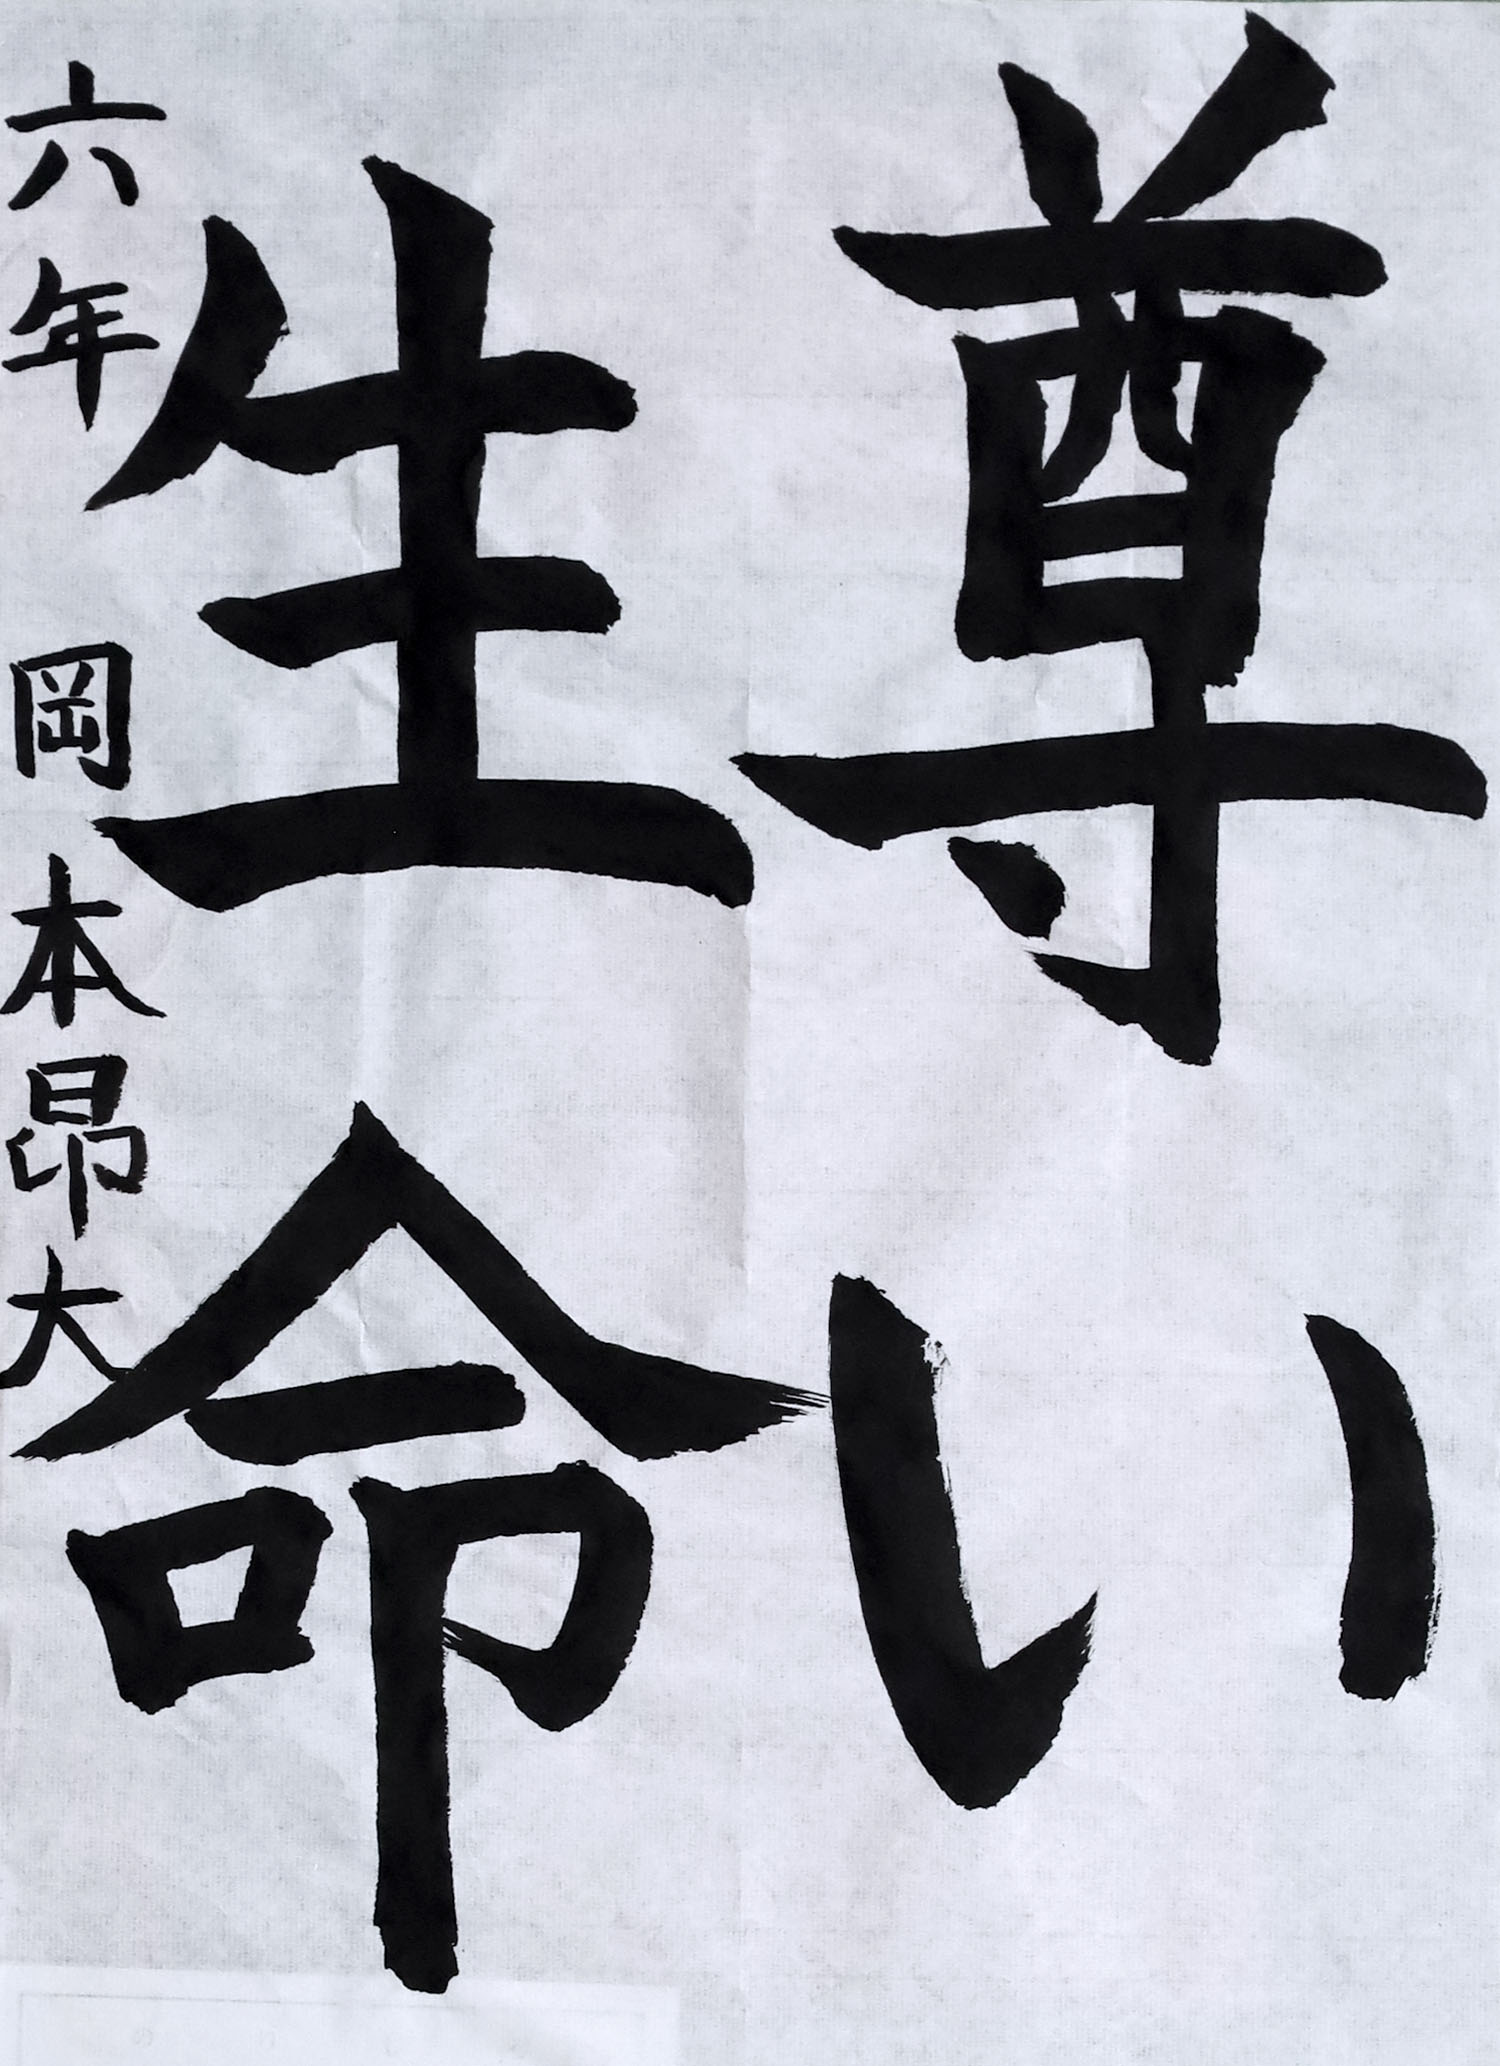 尊い
生命
六年 岡本昂大